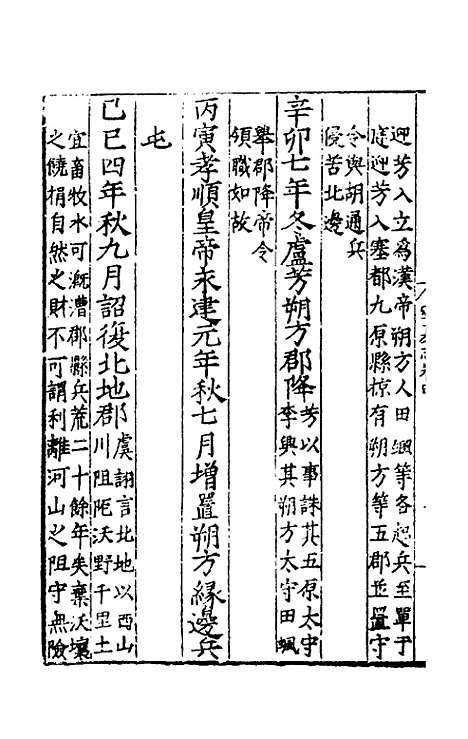 迎芳入立爲漢帝朔方人田颯等各起兵至單于
庭迎芳入塞都九原縣掠有朔方等五郡並置守
令與胡通兵
侵苦北邊
辛卯七年冬盧芳朔方郡降
芳以事誅其五原太守
李興其朔方太守田颯
舉郡降帝令
領職如故
丙寅孝順皇帝永建元年秋七月增置朔方緣邊兵
屯
己巳四年秋九月詔復北地郡
虞詡言北地以西山
川阻阨沃野千里土
宜畜牧水可溉漕郡縣兵荒二十餘年矣棄沃壤
之饒捐自然之財不可謂利離河山之阻守無險